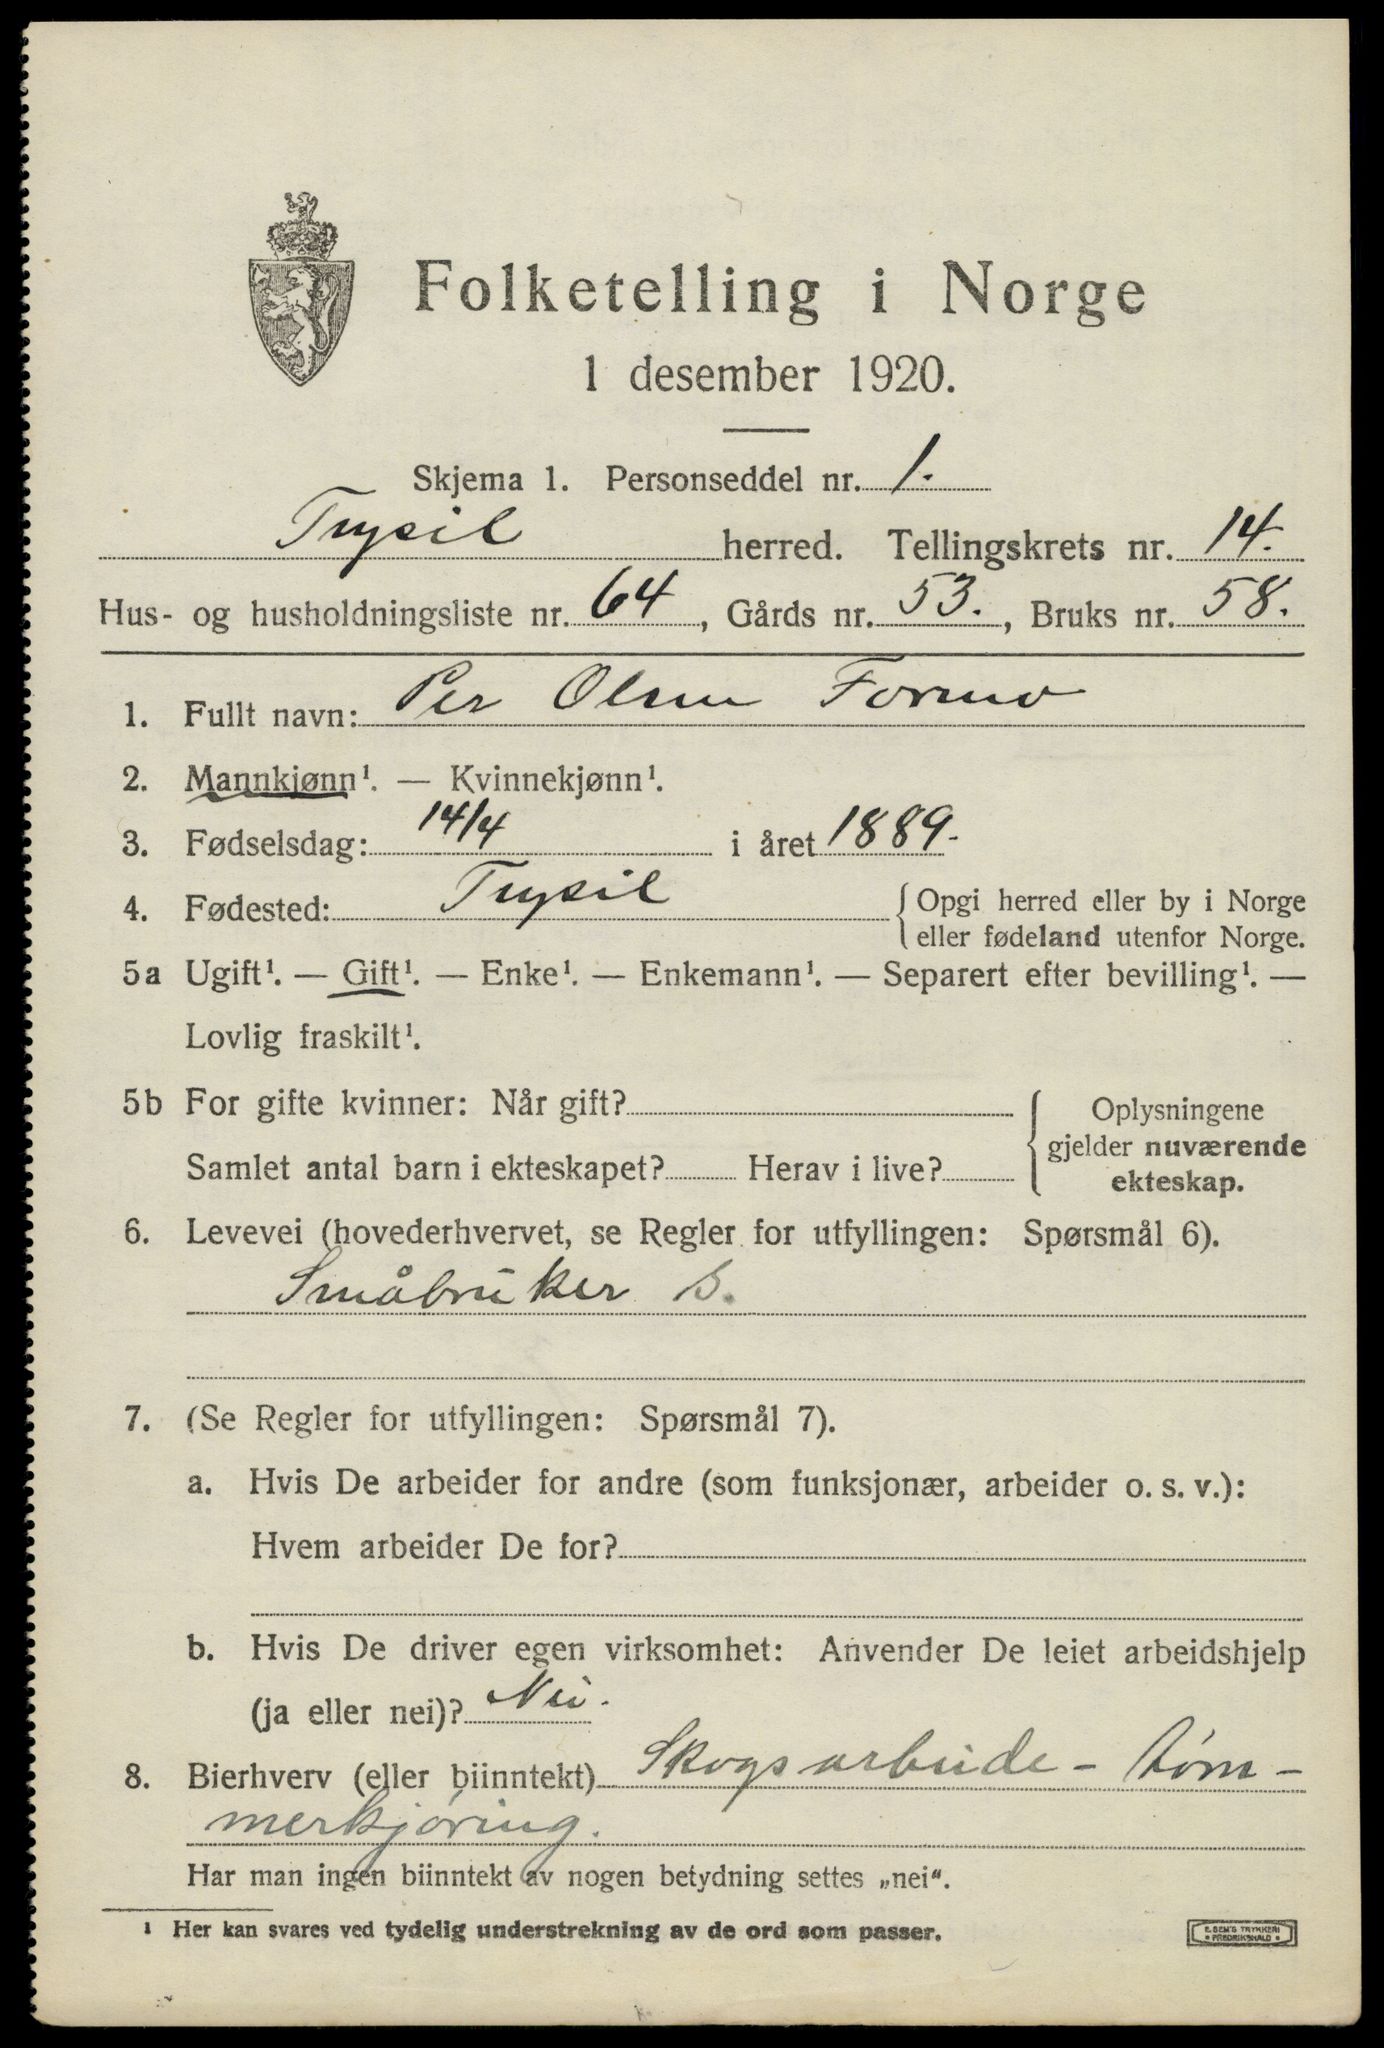 Folketelling i Norge
1 desember 1920.
Skjema 1. Personseddel nr. 1.
Trysil herred. Tellingskrets nr. 14.
Hus- og husholdningsliste nr. 64, Gårds nr. 53., Bruks nr. 58.
1. Fullt navn: Per Olsen Formo
2. Mannkjønn¹. — Kvinnekjønn¹.
3. Fødselsdag: 14/4 i året 1889.
4. Fødested: Trysil { Opgi herred eller by i Norge
eller fødeland utenfor Norge.
5a Ugift¹. — Gift¹. — Enke¹. — Enkemann¹. — Separert efter bevilling¹. —
Lovlig fraskilt¹.
5b For gifte kvinner: Når gift?
Samlet antal barn i ekteskapet? Herav i live?
{ Oplysningene
gjelder nuværende
ekteskap.
6. Levevei (hovederhvervet, se Regler for utfyllingen: Spørsmål 6).
Småbruker S.
7. (Se Regler for utfyllingen: Spørsmål 7).
a. Hvis De arbeider for andre (som funksjonær, arbeider o. s. v.):
Hvem arbeider De for?
b. Hvis De driver egen virksomhet: Anvender De leiet arbeidshjelp
(ja eller nei)? Nei.
8. Bierhverv (eller biinntekt) Skogsarbeide - tøm-
merkjøring.
Har man ingen biinntekt av nogen betydning settes „nei“.
¹ Her kan svares ved tydelig understrekning av de ord som passer.
E. SEM'S TRYKKERI
• FREDRIKSHALD •